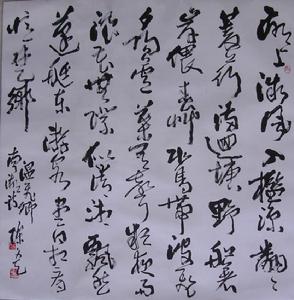 湖上微風入檻涼翻翻
菱荇滿迴塘野船著
岸偎春草水鳥帶波飛
夕陽蘆葉有聲疑夜雨
浪花無際似瀟湘飄然
篷艇東歸客盡日相看
憶楚鄉
溫庭筠
南湖詩